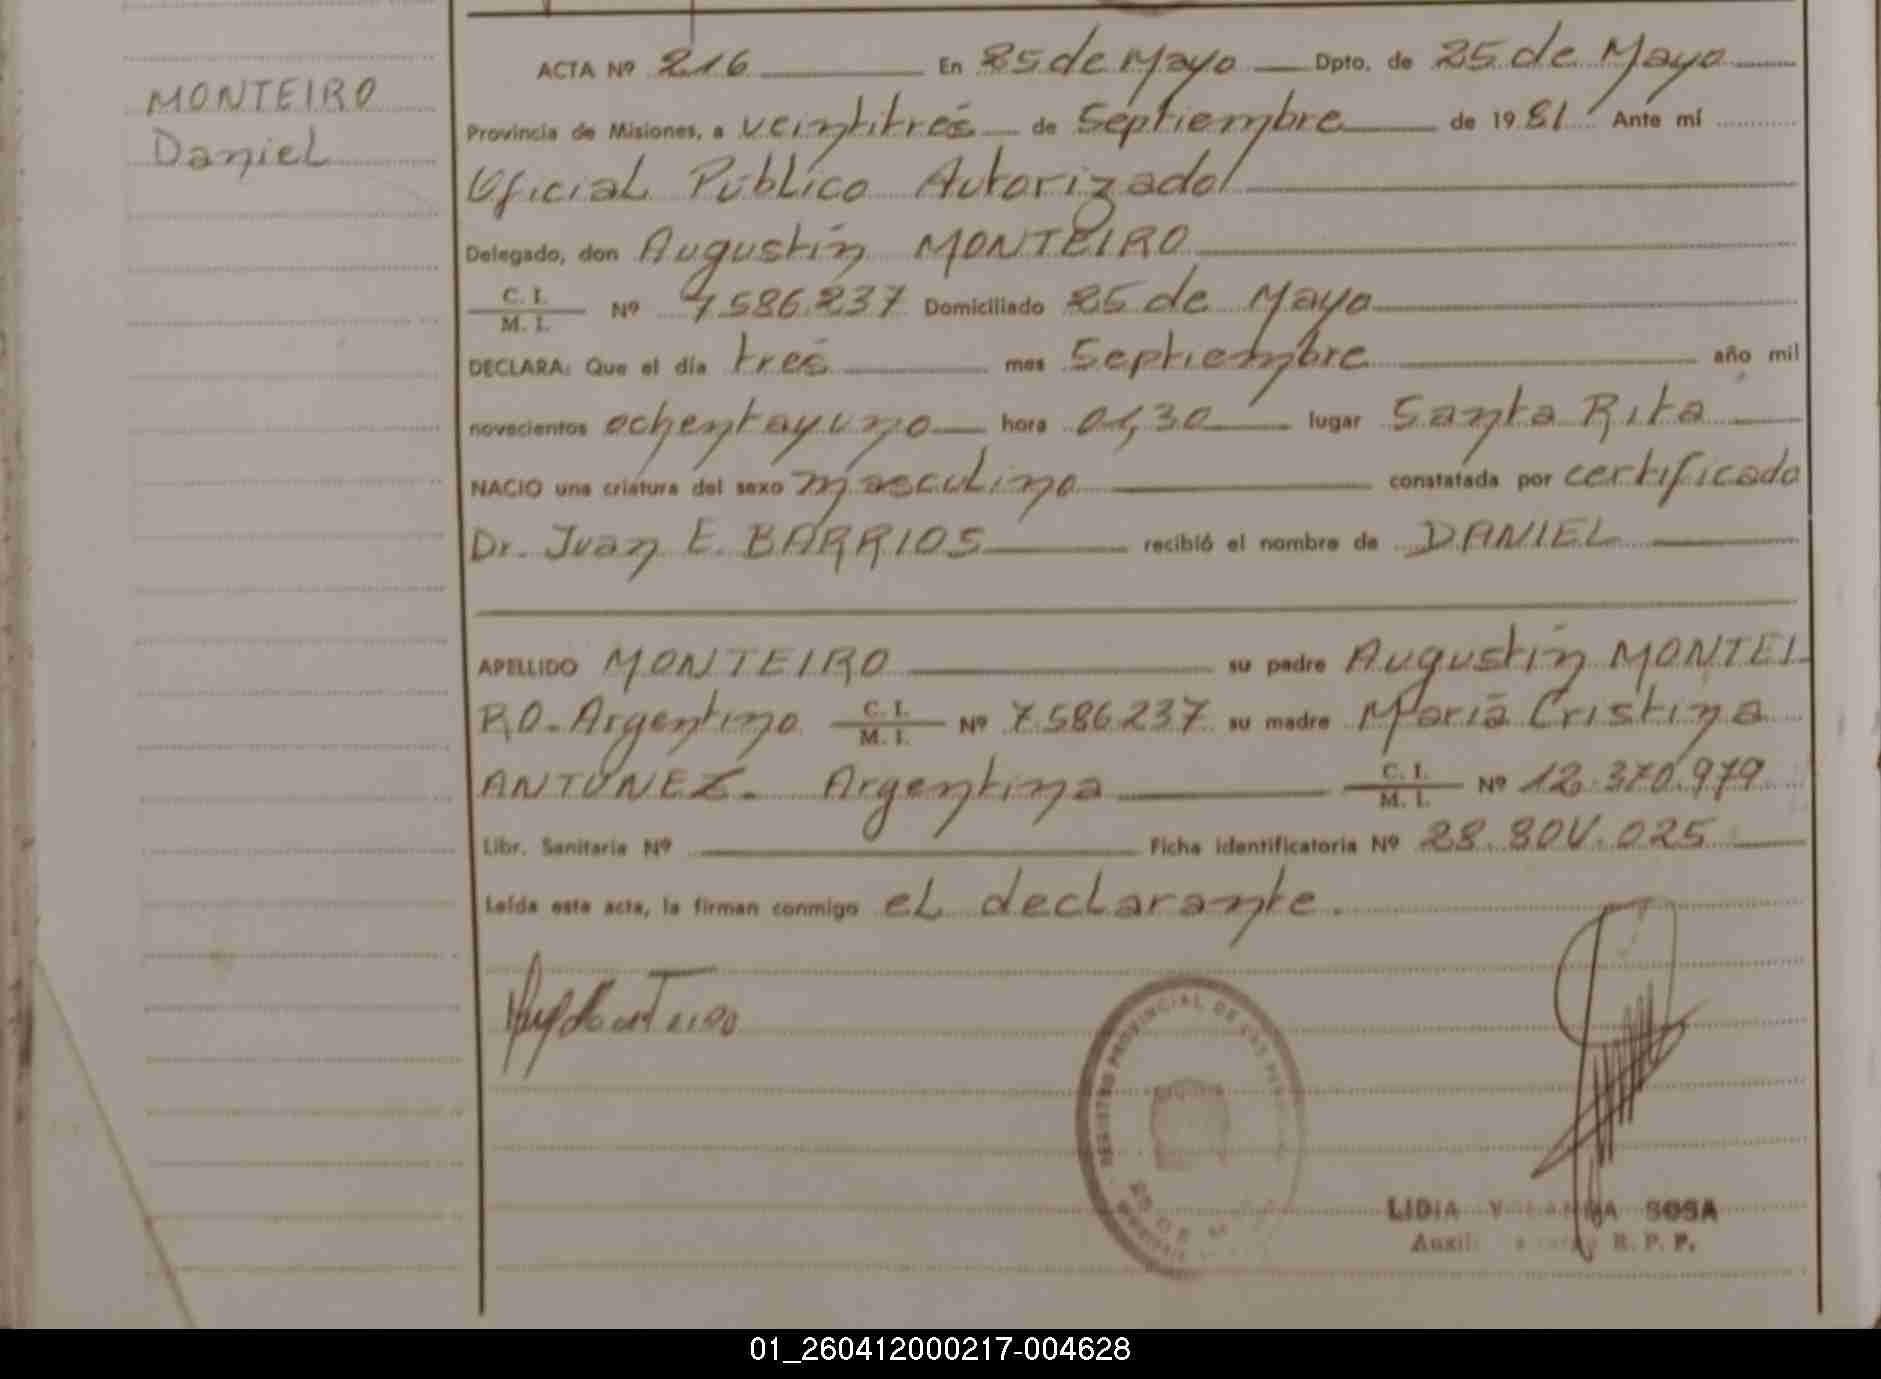 MONTEIRO
Daniel
ACTA Nº 216 En 25 de Mayo Dpto. de 25 de Mayo
Provincia de Misiones, a veintitres de Septiembre de 1981 Ante mí
Oficial Público Autorizado
Delegado, don Augustin MONTEIRO
C. I. / M. I. Nº 7.586.237 Domiciliado 25 de Mayo
DECLARA: Que el día tres mes Septiembre año mil
novecientos ochentayuno hora 01,30 lugar Santa Rita
NACIO una criatura del sexo masculino constatada por certificado
Dr. Juan E. BARRIOS recibió el nombre de DANIEL
APELLIDO MONTEIRO su padre Augustin MONTEI-
RO. Argentino C. I. / M. I. Nº 7.586.237 su madre Maria Cristina
ANTUNEZ. Argentina C. I. / M. I. Nº 12.370.979
Libr. Sanitaria Nº Ficha identificatoria Nº 28.804.025
Leída este acta, la firman conmigo el declarante.
REGISTRO PROVINCIAL DE LAS
25 DE
LIDIA SOSA
R. P. P.
01_260412000217-004628